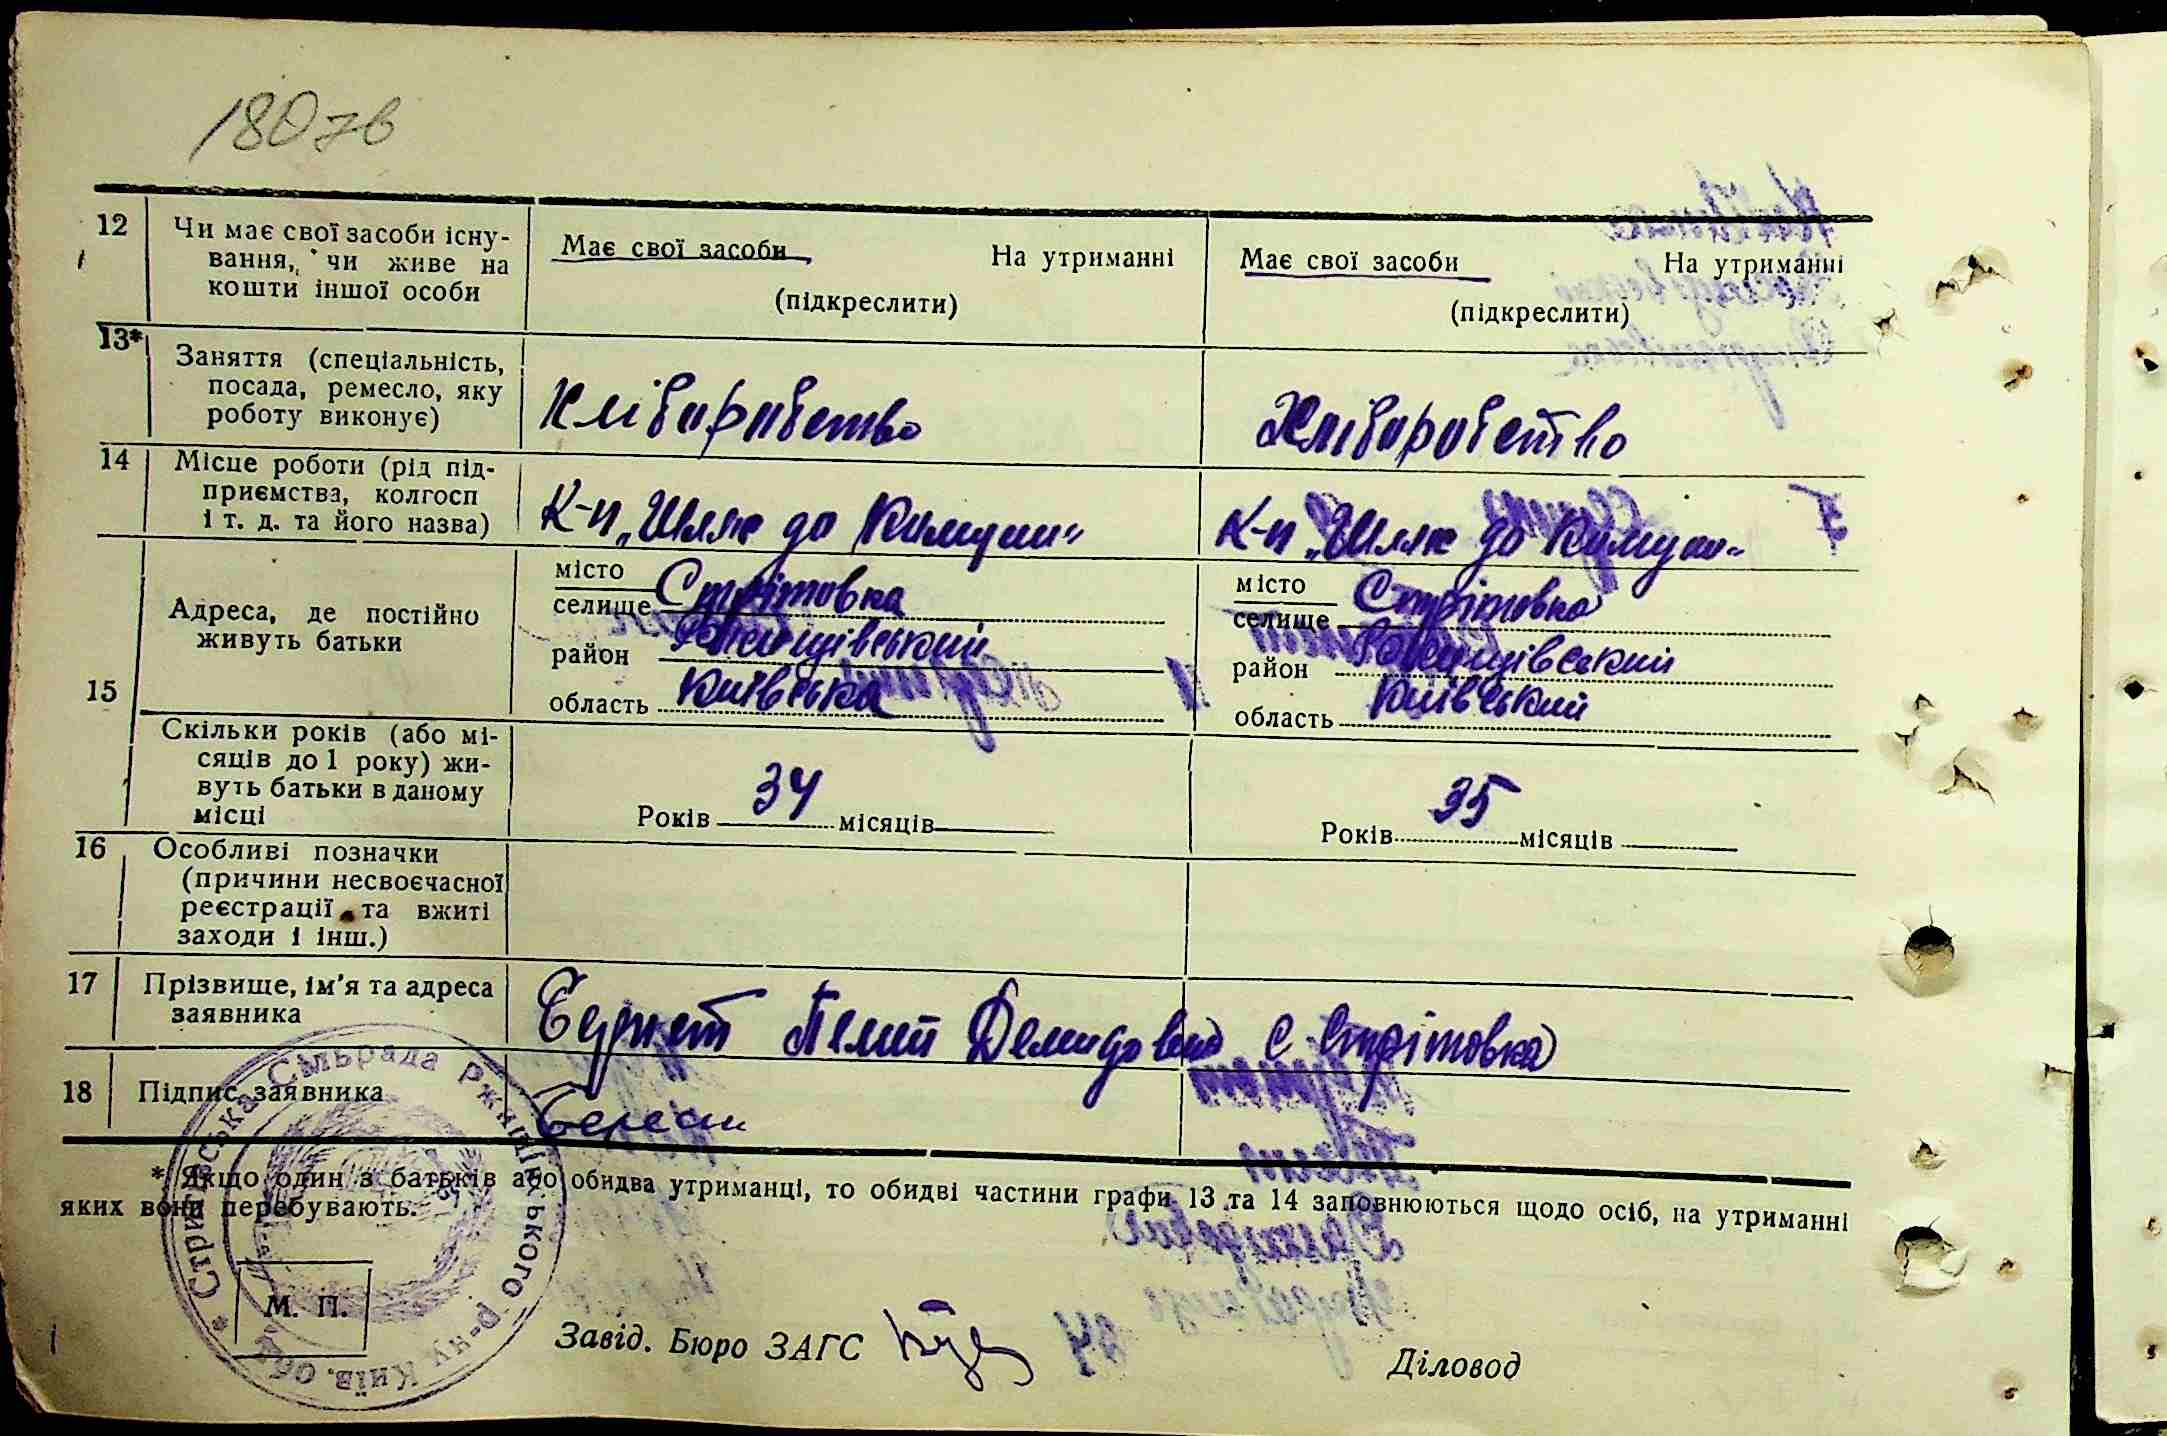 180 зв
12 Чи має свої засоби існу-
вання, чи живе на
кошти іншої особи
Має свої засоби На утриманні
(підкреслити)
Має свої засоби На утриманні
(підкреслити)
13* Заняття (спеціальність,
посада, ремесло, яку
роботу виконує)
Хліборобство
Хліборобство
14 Місце роботи (рід під-
приємства, колгосп
і т. д. та його назва)
К-п „Шлях до Комуни"
К-п „Шлях до Комуни"
15 Адреса, де постійно
живуть батьки
місто
селище Стрітовка
район Ржищівський
область Київська
місто
селище Стрітовка
район Ржищівський
область Київський
Скільки років (або мі-
сяців до 1 року) жи-
вуть батьки в даному
місці
Років 34 місяців
Років 35 місяців
16 Особливі позначки
(причини несвоєчасної
реєстрації та вжиті
заходи і інш.)
17 Прізвище, ім'я та адреса
заявника
Демидович с Стрітовка
18 Підпис заявника
* Якщо один з батьків або обидва утриманці, то обидві частини графи 13 та 14 заповнюються щодо осіб, на утриманні
яких вони перебувають.
М. П.
Завід. Бюро ЗАГС
Діловод